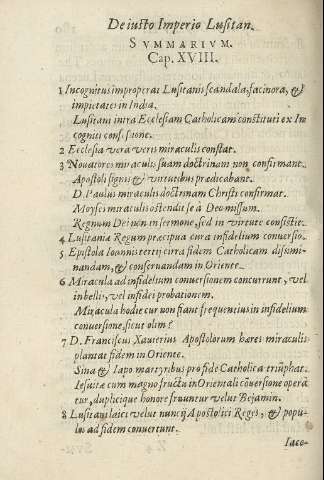 De iusto Imperio Lusitan.
SVMMARIVM.
Cap. XVIII.
1 Incognitus improperat Lusitanis scandala, facinora, &
impietates in India.
Lusitani intra Ecclesiam Catholicam constituti ex In
cogniti confessione.
2 Ecclesia vera veris miraculis constat.
3 Nouatores miraculis suam doctrinam non confirmant.
Apostoli signis & virtutibus prædicabant.
D. Paulus miraculis doctrinam Christi confirmat.
Moyses miraculis ostendit se à Deo missum.
Regnum Dei non in sermone, sed in virtute consistit.
4 Lusitaniæ Regum præcipua cura infidelium conuersio.
5 Epistola Ioannis tertij circa fidem Catholicam dissimi-
nandam, & conseruandam in Oriente.
6 Miracula ad infidelium conuersionem concurrunt, vel
in bellis, vel in fidei probationem.
Miracula hodie cur non fiant frequentius in infidelium
conuersione, sicut olim?
7 D. Franciscus Xauerius Apostolorum hæres miraculis
plantat fidem in Oriente.
Sina & Iapo martyribus pro fide Catholica triũphat.
Iesuitæ cum magno fructu in Orientali cõuersione operã
tur, duplicique honore fruuntur velut Bejamin.
8 Lusitani laici velut nuncij Apostolici Reges, & popu-
los ad fidem conuertunt.
Iaco-